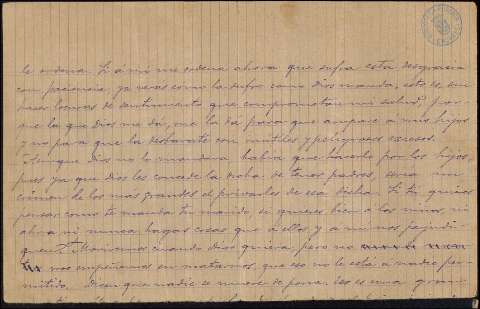 lo ordena. Si á mí me ordena ahora que sufra esta desgracia
con paciencia, ya veras como la sufro como Dios manda, esto es, sin
hacer locuras de sentimiento que comprometan mi salud, por-
que la que Dios me da, me la dá para que ampare á mis hijos
y no para que la desbarate con inútiles y peligrosos excesos.
Aunque Dios no lo mandara, habia que hacerlo por los hijos,
pues ya que Dios les concede la dicha de tener padres, seria un
crímen de los más grandes el privarles de esa dicha. Si tú quieres
pensar como te manda tu marido, si quieres bien á los niños, ni
ahora ni nunca hagas cosas que á ellos y á mi nos perjudi-
quen. Moriremos cuando Dios quiera pero no
nos empeñemos en matarnos, que eso no le está á nadie per-
mitido. Dicen que nadie se muere de pena. Eso es una gran